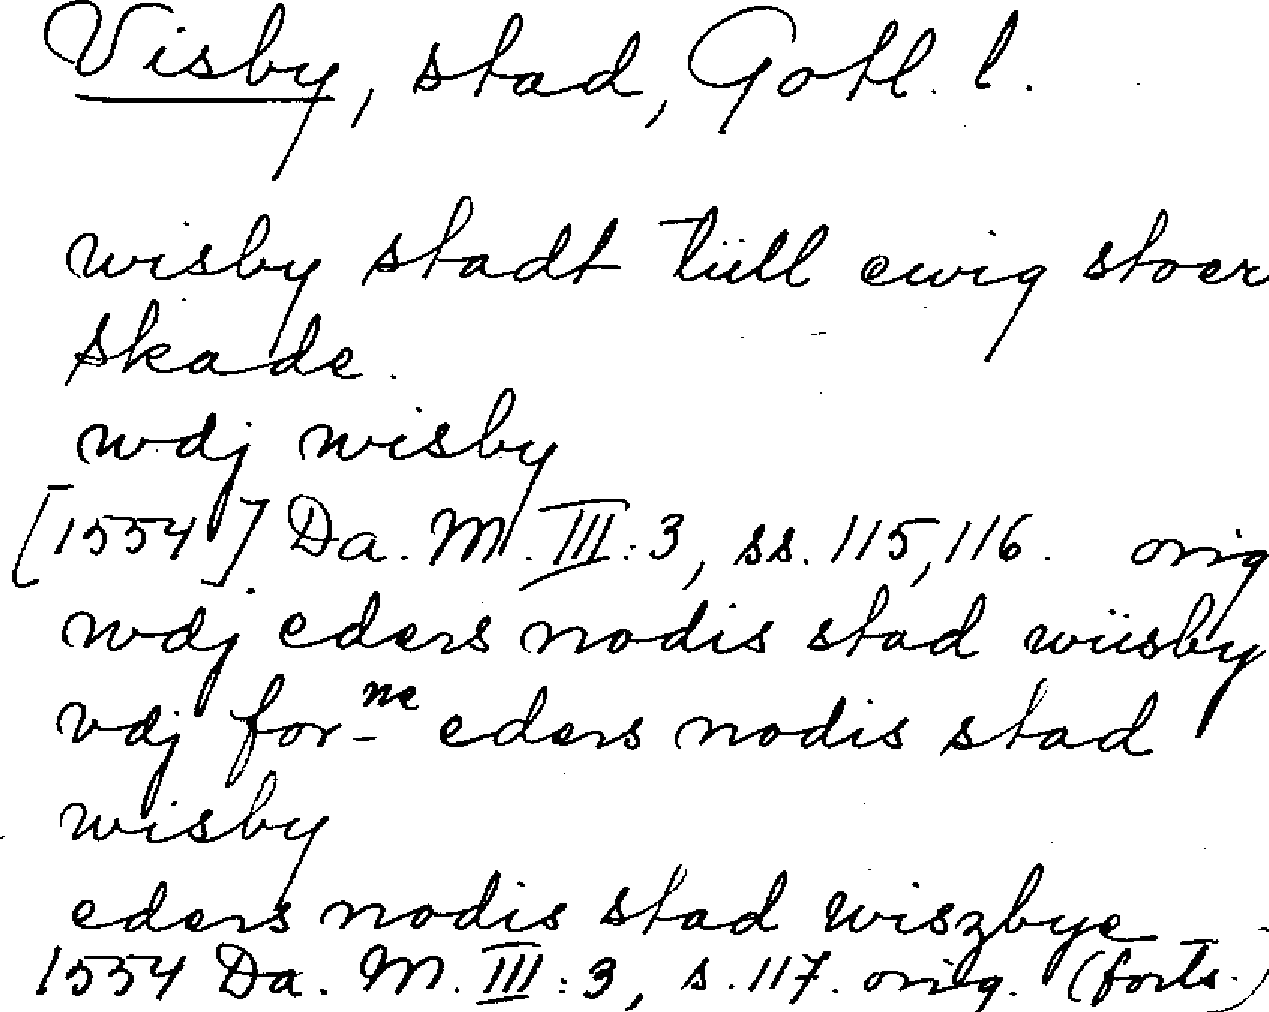 Visby, stad, Gotl. l.
wisby stadt tüll ewig stoer
skade.
wdj wisby
[1554] Da. M. III:3, ss. 115, 116. orig
wdj eders nodis stad wüsby
vdj for-ne eders nodis stad
wisby
eders nodis stad wiszbye
1554 Da. M. III:3, s. 117. orig. (forts.)